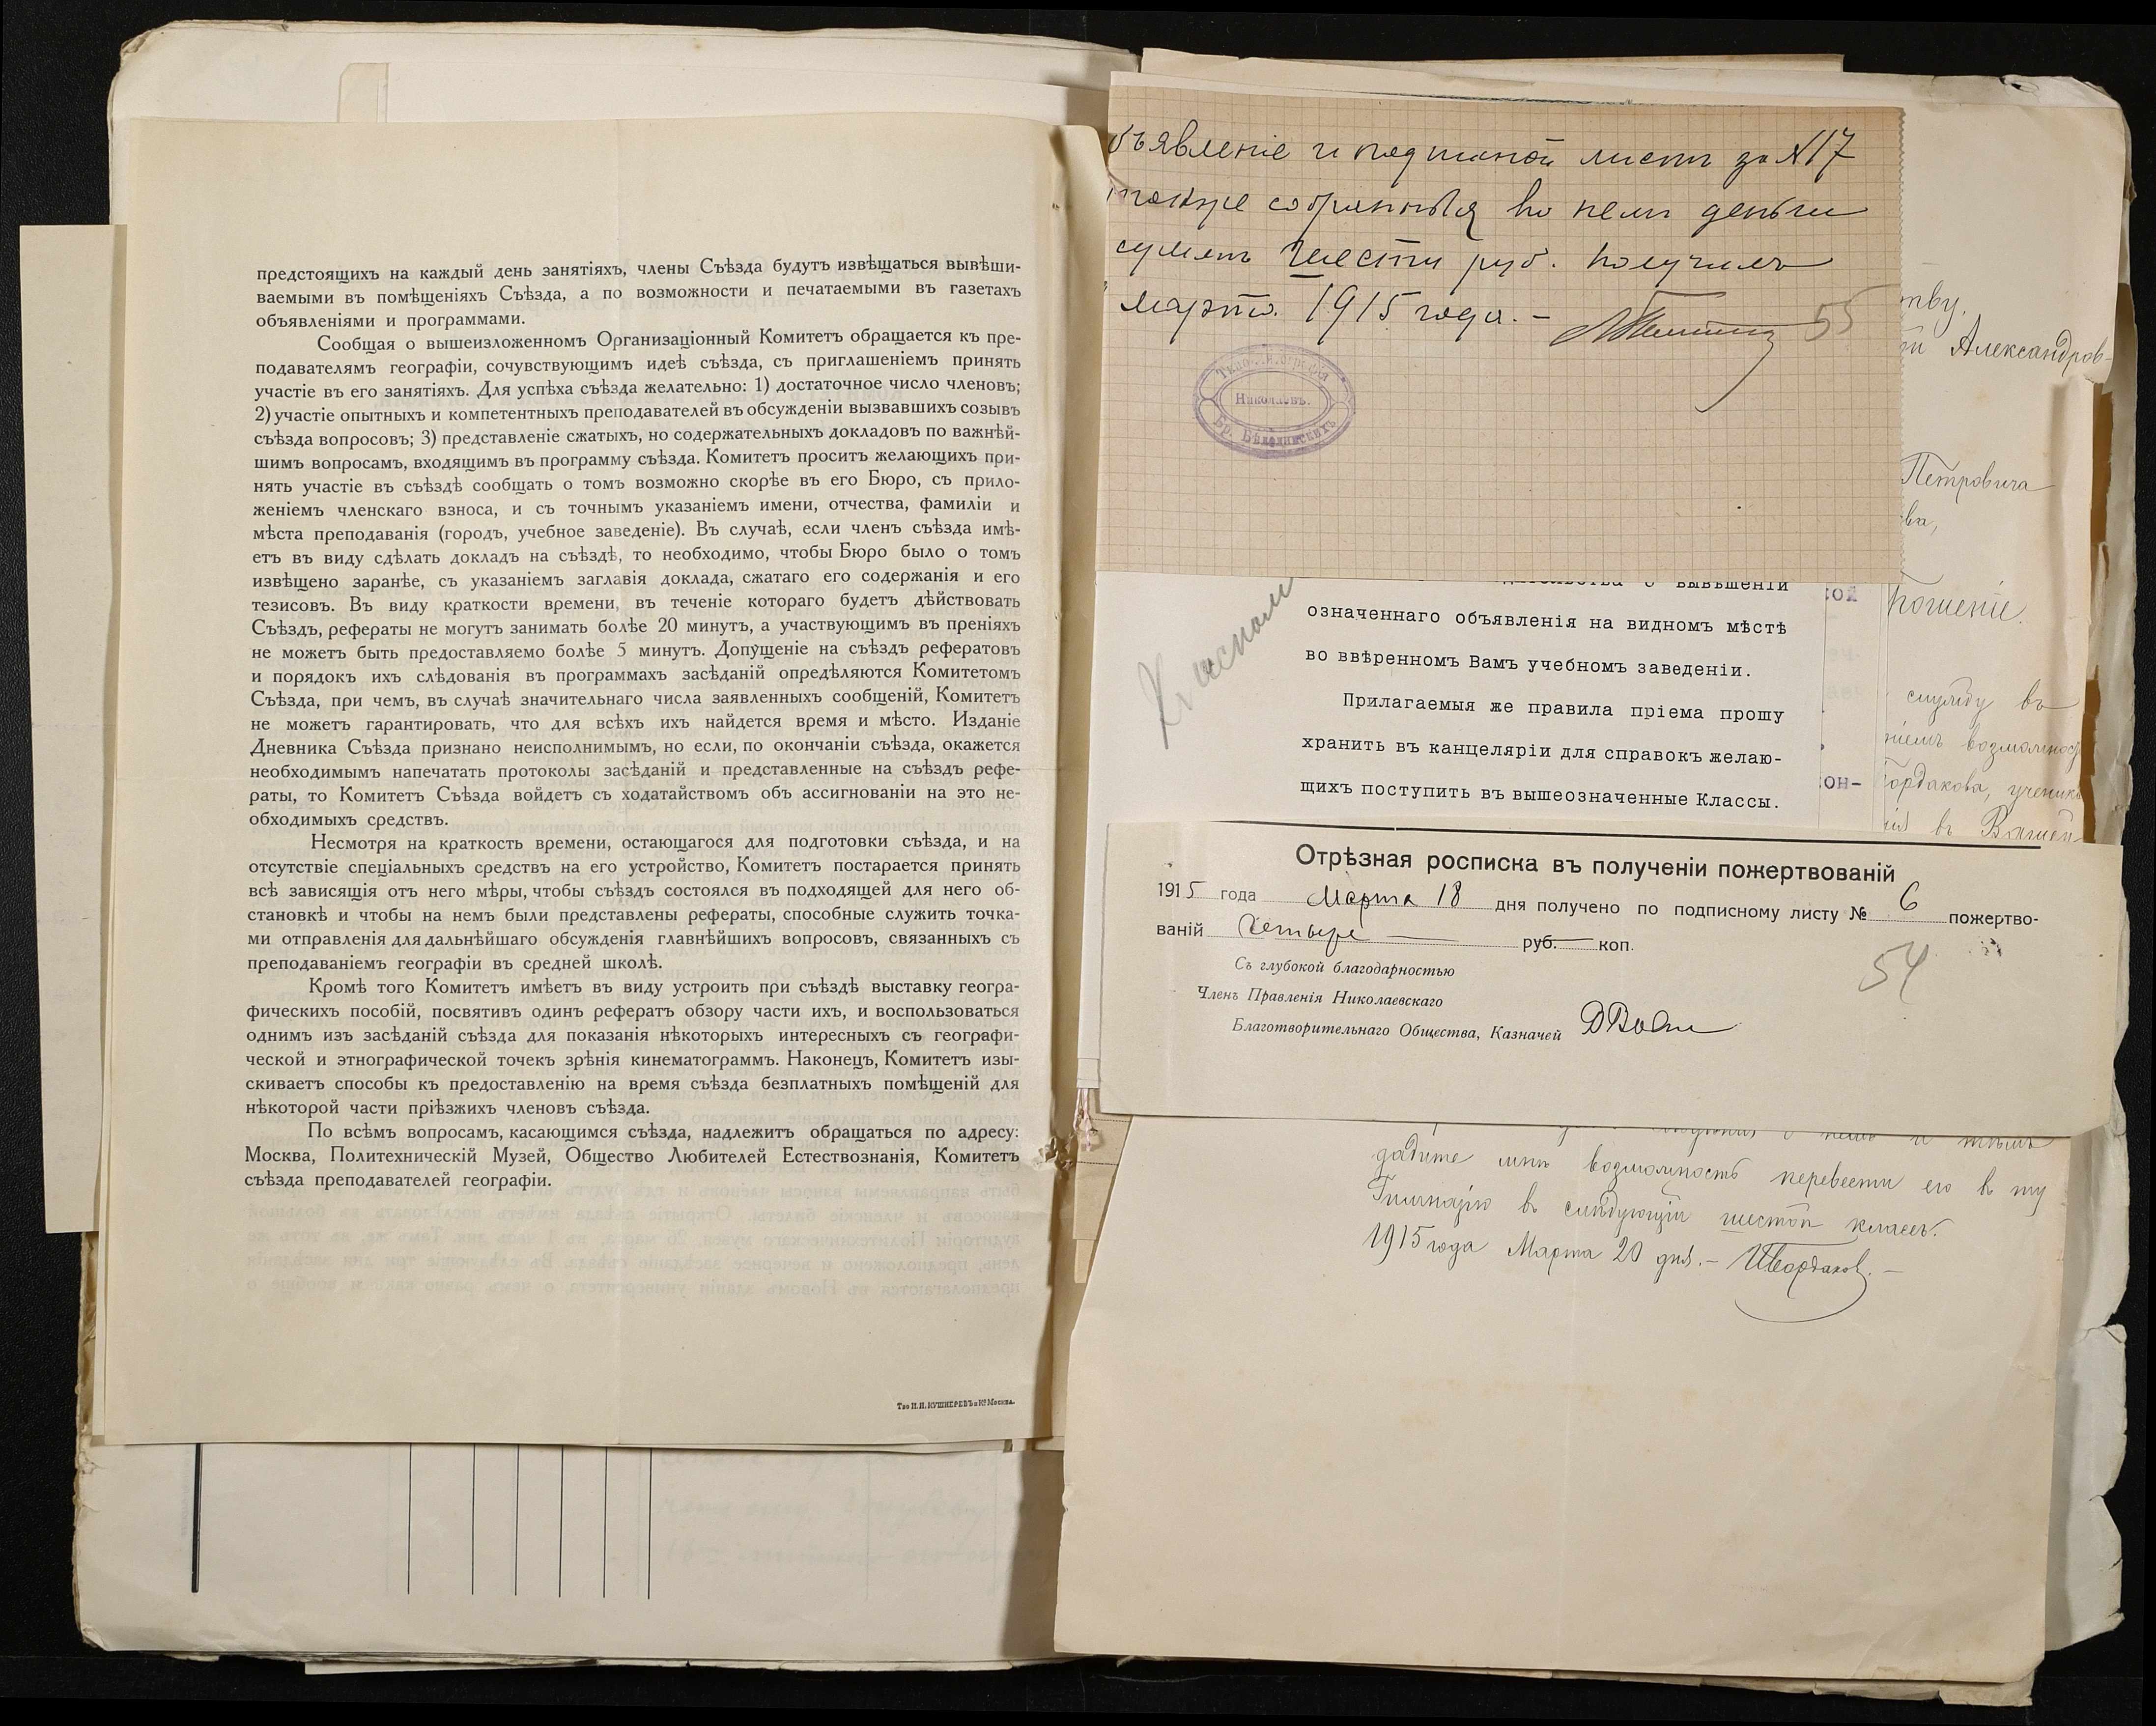 предстоящихъ на каждый день занятіяхъ, члены Съѣзда будутъ извѣщаться вывѣши-
ваемыми въ помѣщеніяхъ Съѣзда, а по возможности и печатаемыми въ газетахъ
объявленіями и программами.
Сообщая о вышеизложенномъ Организаціонный Комитетъ обращается къ пре-
подавателямъ географіи, сочувствующимъ идеѣ съѣзда, съ приглашеніемъ принять
участіе въ его занятіяхъ. Для успѣха съѣзда желательно: 1) достаточное число членовъ;
2) участіе опытныхъ и компетентныхъ преподавателей въ обсужденіи вызвавшихъ созывъ
съѣзда вопросовъ; 3) представленіе сжатыхъ, но содержательныхъ докладовъ по важнѣй-
шимъ вопросамъ, входящимъ въ программу съѣзда. Комитетъ проситъ желающихъ при-
нять участіе въ съѣздѣ сообщать о томъ возможно скорѣе въ его Бюро, съ прило-
женіемъ членскаго взноса, и съ точнымъ указаніемъ имени, отчества, фамиліи и
мѣста преподаванія (городъ, учебное заведеніе). Въ случаѣ, если членъ съѣзда имѣ-
етъ въ виду сдѣлать докладъ на съѣздѣ, то необходимо, чтобы Бюро было о томъ
извѣщено заранѣе, съ указаніемъ заглавія доклада, сжатаго его содержанія и его
тезисовъ. Въ виду краткости времени, въ теченіе котораго будетъ дѣйствовать
Съѣздъ, рефераты не могутъ занимать болѣе 20 минутъ, а участвующимъ въ преніяхъ
не можетъ быть предоставляемо болѣе 5 минутъ. Допущеніе на съѣздъ рефератовъ
и порядокъ ихъ слѣдованія въ программахъ засѣданій опредѣляются Комитетомъ
Съѣзда, при чемъ, въ случаѣ значительнаго числа заявленныхъ сообщеній, Комитетъ
не можетъ гарантировать, что для всѣхъ ихъ найдется время и мѣсто. Изданіе
Дневника Съѣзда признано неисполнимымъ, но если, по окончаніи съѣзда, окажется
необходимымъ напечатать протоколы засѣданій и представленные на съѣздъ рефе-
раты, то Комитетъ Съѣзда войдетъ съ ходатайствомъ объ ассигнованіи на это не-
обходимыхъ средствъ.
Несмотря на краткость времени, остающагося для подготовки съѣзда, и на
отсутствіе спеціальныхъ средствъ на его устройство, Комитетъ постарается принять
всѣ зависящія отъ него мѣры, чтобы съѣздъ состоялся въ подходящей для него об-
становкѣ и чтобы на немъ были представлены рефераты, способные служить точка-
ми отправленія для дальнѣйшаго обсужденія главнѣйшихъ вопросовъ, связанныхъ съ
преподаваніемъ географіи въ средней школѣ.
Кромѣ того Комитетъ имѣетъ въ виду устроить при съѣздѣ выставку геогра-
фическихъ пособій, посвятивъ одинъ рефератъ обзору части ихъ, и воспользоваться
однимъ изъ засѣданій съѣзда для показанія нѣкоторыхъ интересныхъ съ географи-
ческой и этнографической точекъ зрѣнія кинематограммъ. Наконецъ, Комитетъ изы-
скиваетъ способы къ предоставленію на время съѣзда безплатныхъ помѣщеній для
нѣкоторой части пріѣзжихъ членовъ съѣзда.
По всѣмъ вопросамъ, касающимся съѣзда, надлежитъ обращаться по адресу:
Москва, Политехническій Музей, Общество Любителей Естествознанія, Комитетъ
съѣзда преподавателей географіи.
Т-во И. Н. КУШНЕРЕВЪ и К° Москва.
бъявленіе и подписной листъ за №17
также собранныя по немъ деньги
сумтъ шесть руб. получилъ
марта 1915 года. –
55
Типо-Литографія
Николаевъ.
Бр. Бѣлолипскихъ
тву,
Александров-
Петровича
ва,
рошеніе.
службу въ
ніемъ возможнос
Гордакова, ученик
въ Вашей
о вывѣшеніи
означеннаго объявленія на видномъ мѣстѣ
во ввѣренномъ Вамъ учебномъ заведеніи.
Прилагаемыя же правила пріема прошу
хранить въ канцеляріи для справокъ желаю-
щихъ поступить въ вышеозначенные Классы.
он-
Отрѣзная росписка въ полученіи пожертвованій
1915 года Марта 18 дня получено по подписному листу № 6 пожертво-
ваній Четыре — руб. — коп.
54
Съ глубокой благодарностью
Членъ Правленія Николаевскаго
Благотворительнаго Общества, Казначей
дадите мнѣ возможность перевести его в ту
Гимназію въ слѣдующій шестой классъ.
1915 года Марта 20 дня. – И Гордаков. –